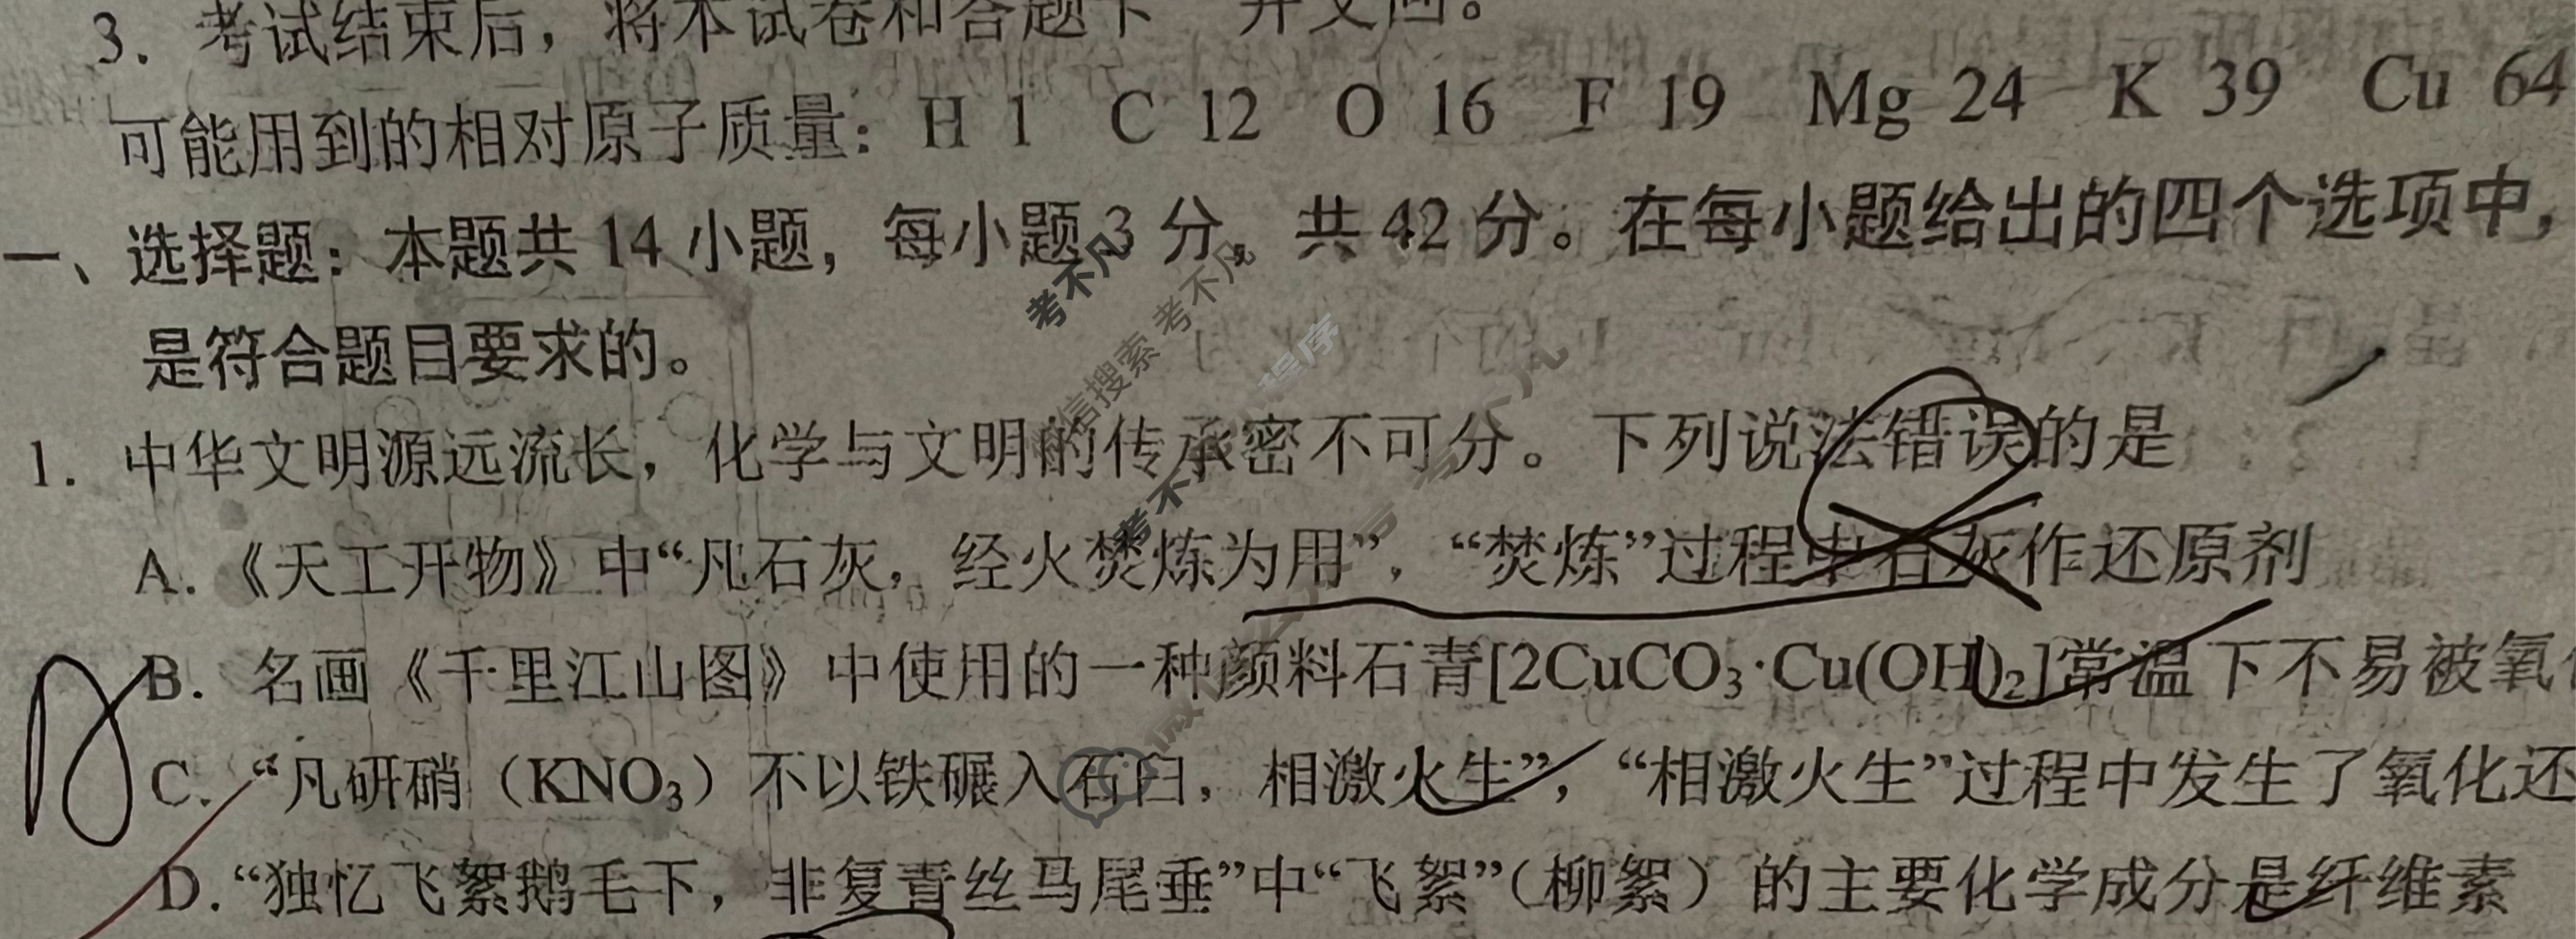 3. 考试结束后，将本试卷和答题卡一并交回。
可能用到的相对原子质量：H 1 C 12 O 16 F 19 Mg 24 K 39 Cu 64
一、选择题：本题共 14 小题，每小题 3 分，共 42 分。在每小题给出的四个选项中，
是符合题目要求的。
1. 中华文明源远流长，化学与文明的传承密不可分。下列说法错误的是
A.《天工开物》中“凡石灰，经火焚炼为用”，“焚炼”过程中石灰作还原剂
B. 名画《千里江山图》中使用的一种颜料石青[2CuCO₃·Cu(OH)₂]常温下不易被氧
C. “凡研硝（KNO₃）不以铁碾入石臼，相激火生”，“相激火生”过程中发生了氧化还
D.“独忆飞絮鹅毛下，非复青丝马尾垂”中“飞絮”（柳絮）的主要化学成分是纤维素
考不凡
微信搜索 考不凡
小程序
考不凡